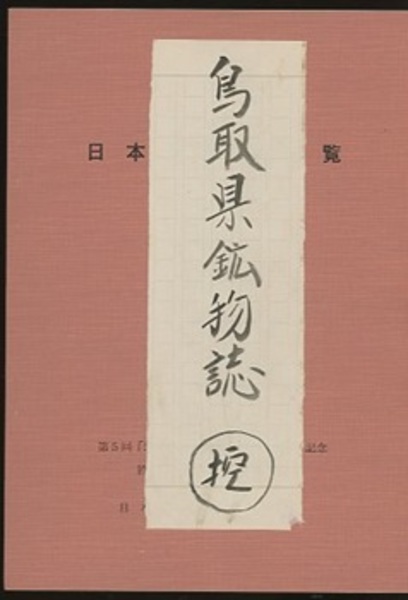 日本
覧
鳥取県鉱物誌
第5回
記念
控
日